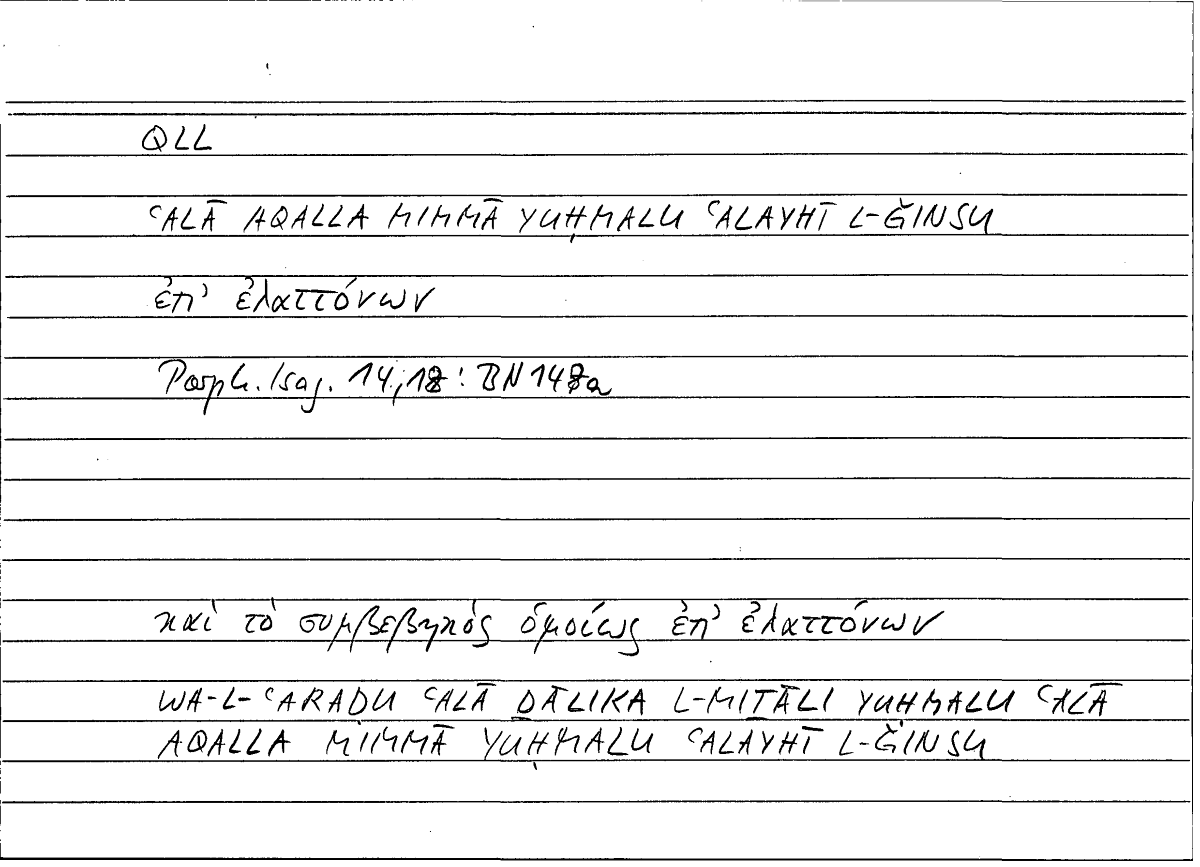 QLL
ʿALĀ AQALLA MIMMĀ YUḤMALU ʿALAYHĪ L-ǦINSU
ἐπ' ἐλαττόνων
Porph. Isag. 14,18: BN 148a
καὶ τὸ συμβεβηκὸς ὁμοίως ἐπ' ἐλαττόνων
WA-L-ʿARADU ʿALĀ ḎĀLIKA L-MIṮĀLI YUHMALU ʿALĀ
AQALLA MIMMĀ YUḤMALU ʿALAYHĪ L-ǦINSU